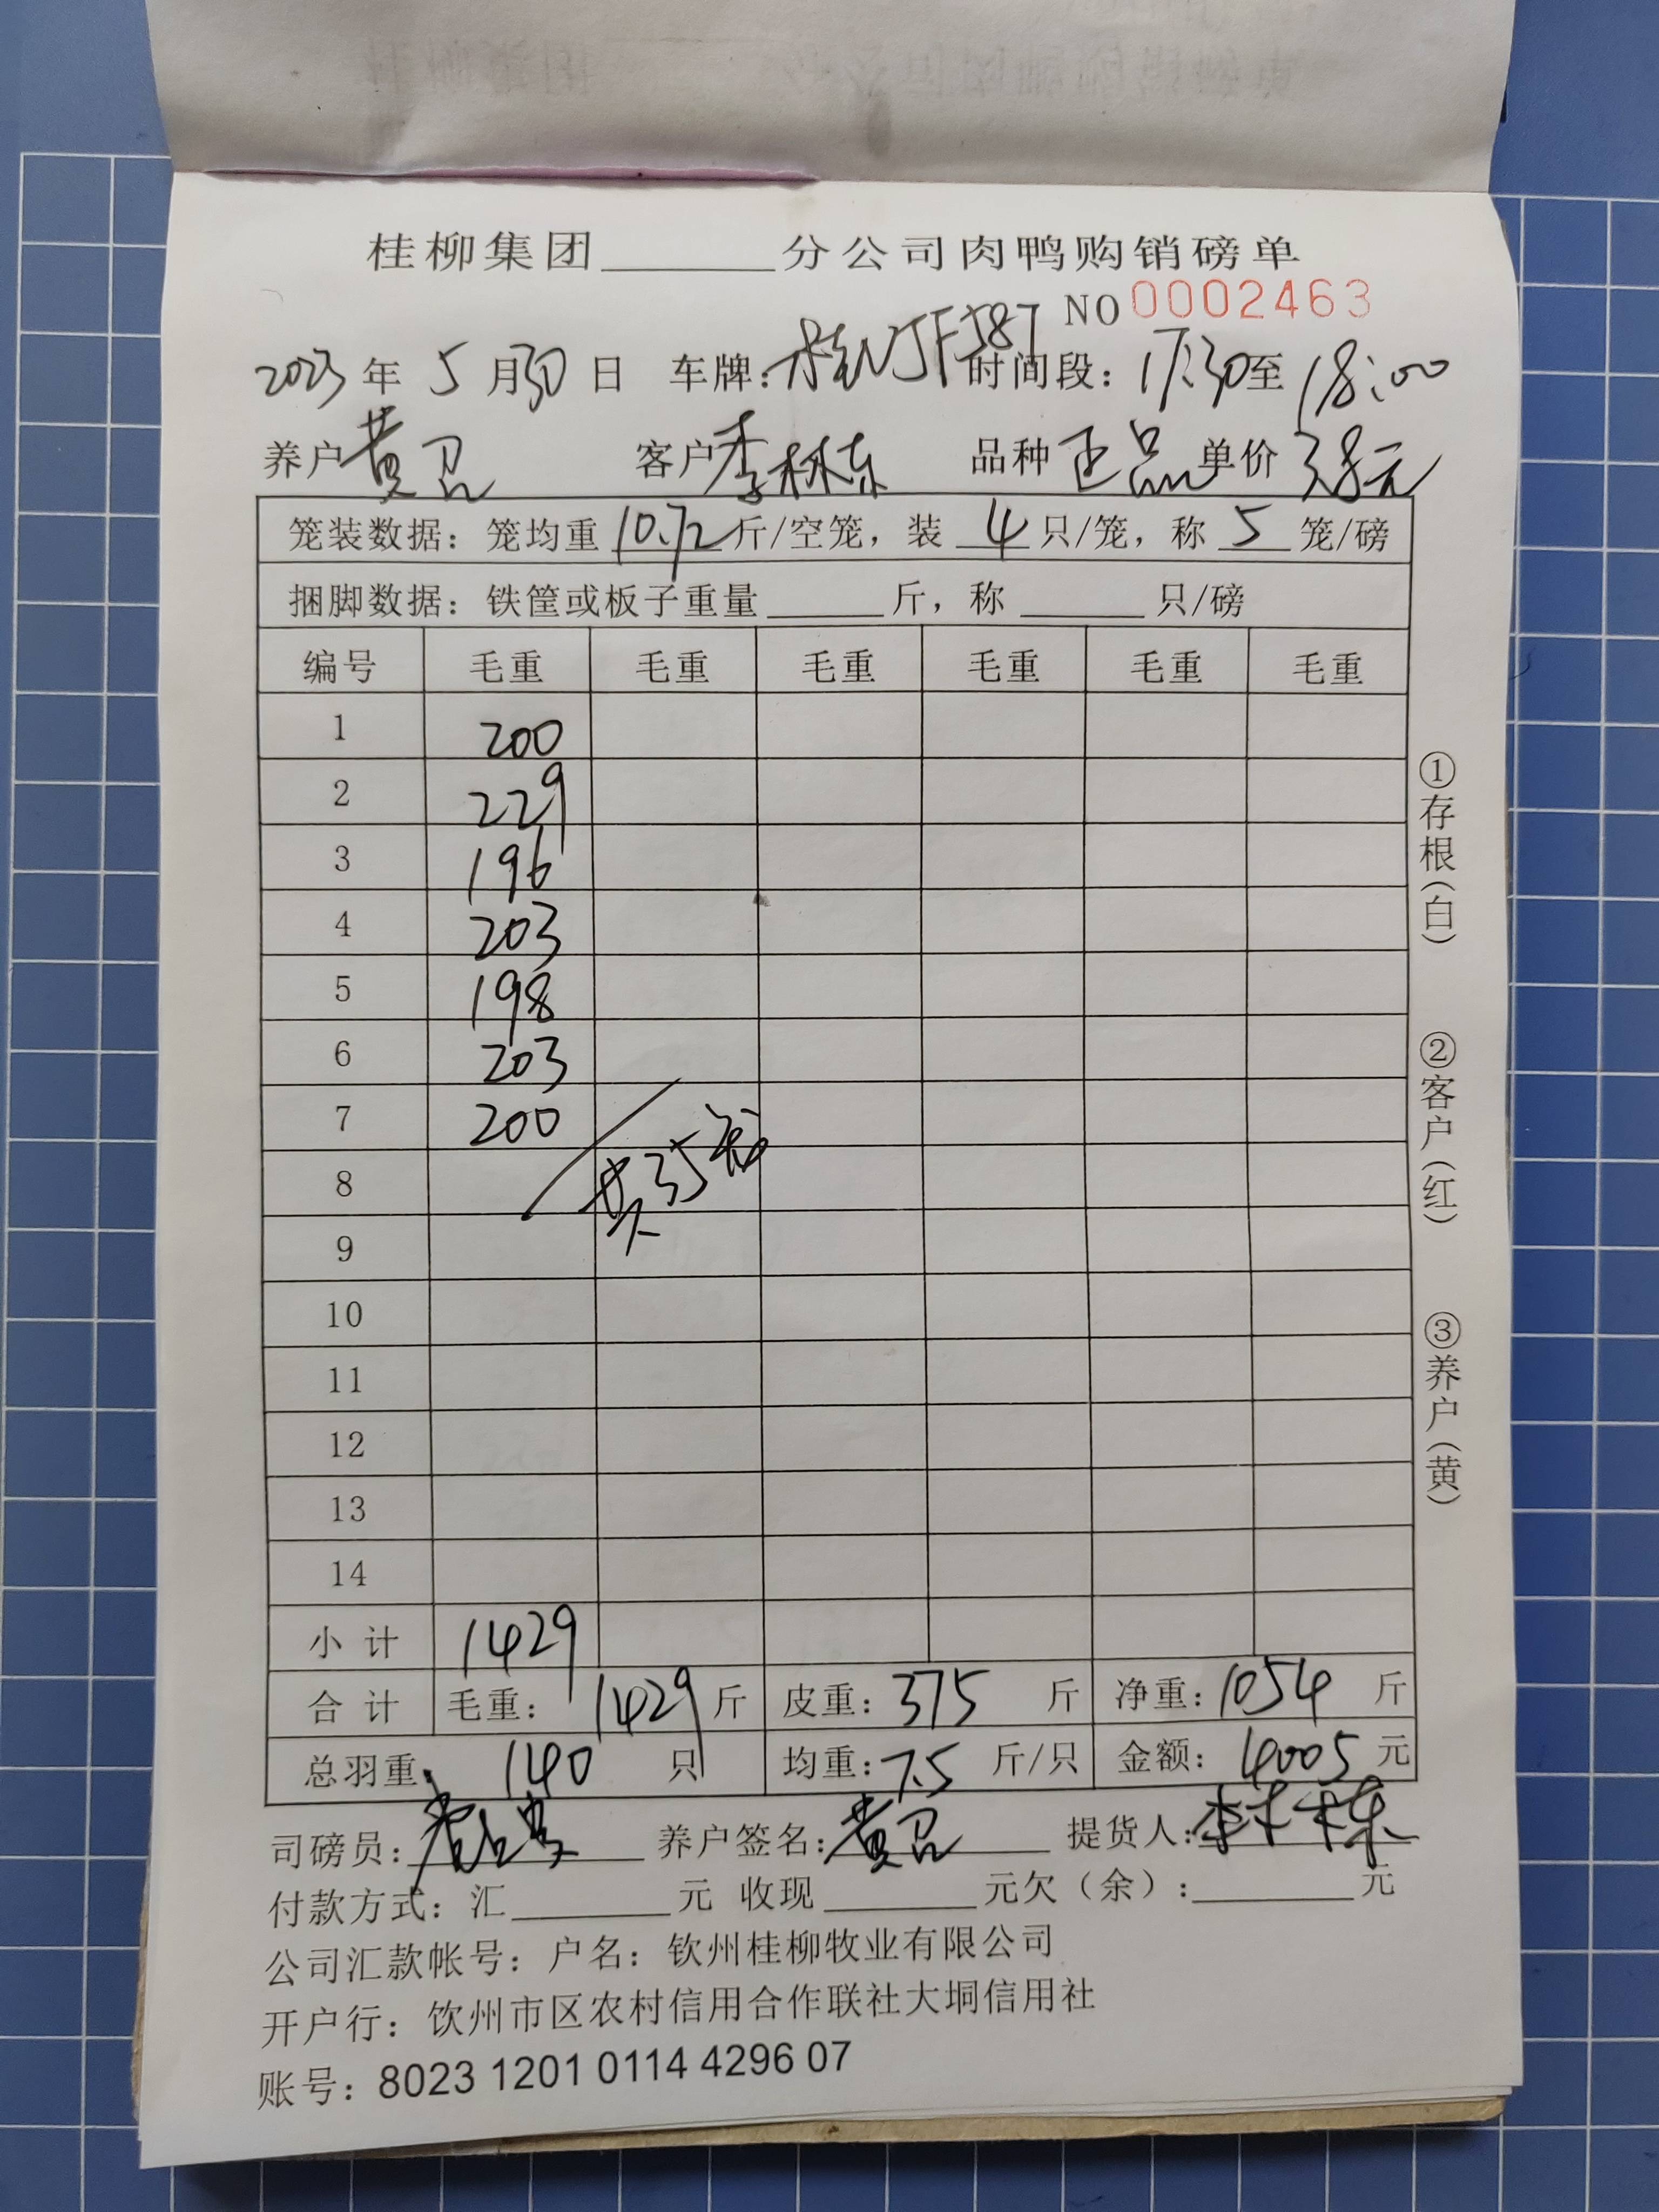 桂柳集团______分公司肉鸭购销磅单
NO 0002463
2023 年 5 月 30 日 车牌:桂NJF587 时间段:17:30至18:00
养户 黄召 客户 李林东 品种 正品 单价 3.8元
笼装数据:笼均重 10.72 斤/空笼,装 4 只/笼,称 5 笼/磅
捆脚数据:铁筐或板子重量______斤,称______只/磅
编号 毛重 毛重 毛重 毛重 毛重 毛重
1 200
2 229
3 196
4 203
5 198
6 203
7 200
共35笼
8
9
10
11
12
13
14
小计 1429
合计 毛重: 1429 斤 皮重: 375 斤 净重: 1054 斤
总羽重: 140 只 均重: 7.5 斤/只 金额: 4005 元
司磅员: 养户签名: 黄召 提货人: 李林栋
付款方式:汇______元 收现______元欠(余):______元
公司汇款帐号:户名:钦州桂柳牧业有限公司
开户行:饮州市区农村信用合作联社大垌信用社
账号:8023 1201 0114 4296 07
①存根(白)
②客户(红)
③养户(黄)